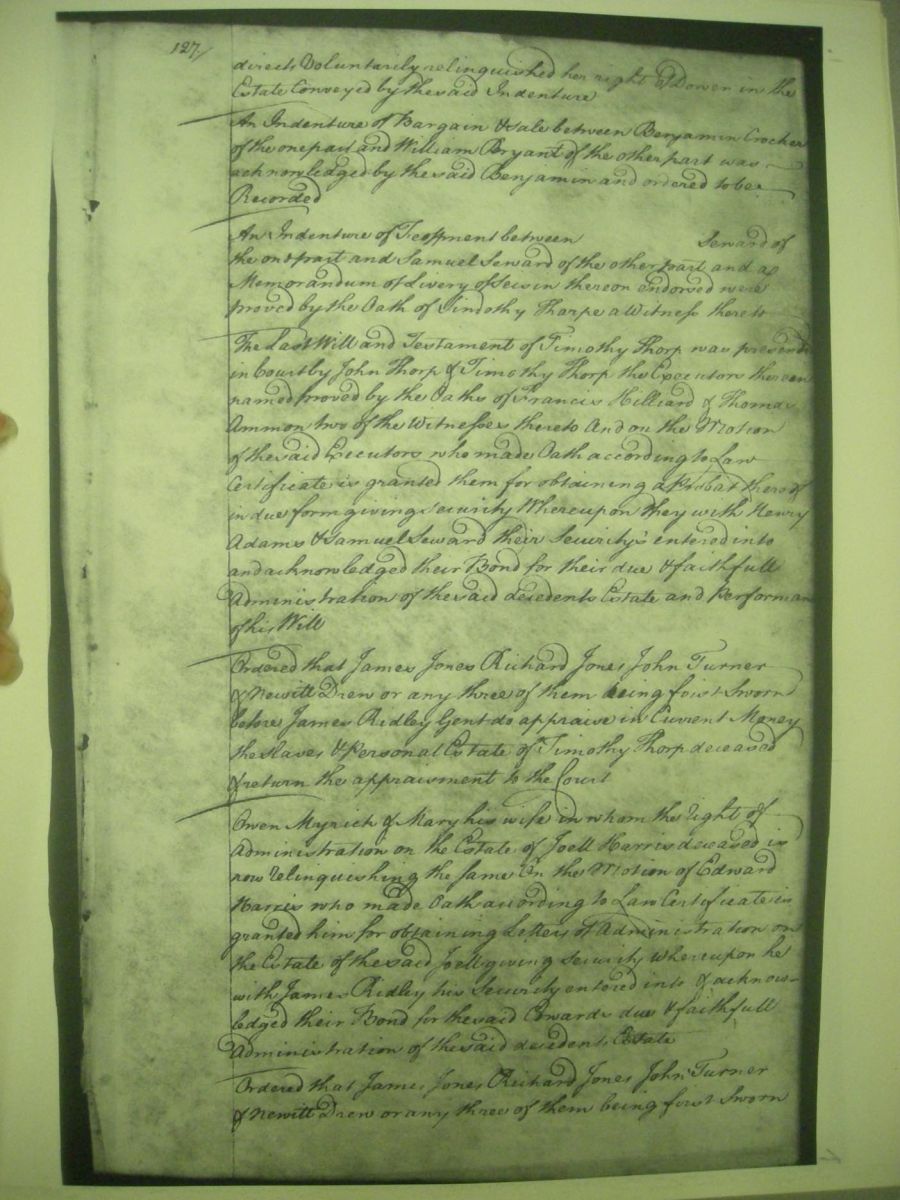 127/
directs Voluntarily relinquished her right of Dower in the
Estate Conveyed by the said Indenture
An Indenture of Bargain & Sale between Benjamin Crocker
of the one part and William Bryant of the other part was
acknowledged by the said Benjamin and ordered to be
Recorded
An Indenture of Feoffment between Seward of
the one part and Samuel Seward of the other part and a
Memorandum of Livery of Seisin thereon endorsed were
proved by the Oath of Timothy Tharpe a Witness thereto
The Last Will and Testament of Timothy Thorp was presented
in Court by John Thorp & Timothy Thorp the Executors therein
named proved by the Oaths of Francis Hilliard & Thomas
Ammon two of the Witnesses thereto And on the Motion
of the said Executors who made Oath according to Law
Certificate is granted them for obtaining a Probat thereof
in due form giving security Whereupon they with Henry
Adams & Samuel Seward their Security's entered into
and acknowledged their Bond for their due & faithfull
Administration of the said decedents Estate and Performan
of his Will
Ordered that James Jones Richard Jones John Turner
& Newitt Drew or any three of them being first Sworn
before James Ridley Gent do appraise in Current Money
the Slaves & Personal Estate of Timothy Thorp deceased
& return the appraisment to the Court
Owen Myrick & Mary his wife in whom the right of
Administration on the Estate of Joell Harris deceased is
now relinquishing the same On the Motion of Edward
Harris who made Oath according to Law Certificate is
granted him for obtaining Letters of Administration on
the Estate of the said Joell giving security whereupon he
with James Ridley his Security entered into & acknow-
ledged their Bond for the said Edwards due & faithfull
Administration of the said decedents Estate
Ordered that James Jones Richard Jones John Turner
& Newitt Drew or any three of them being first Sworn